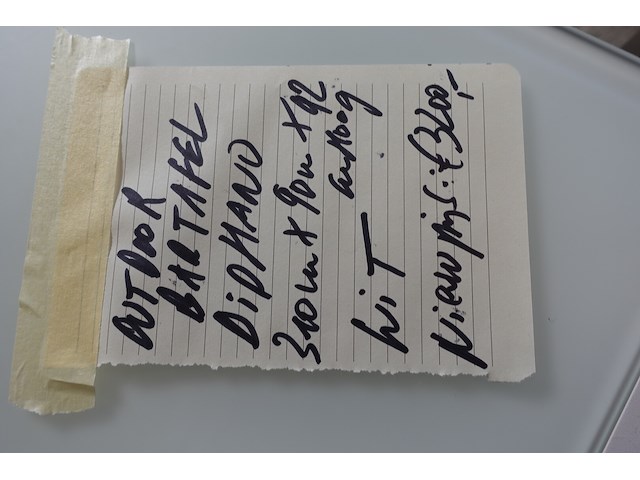 OUTDOOR
BARTAFEL
DiPHANO
310 cm x 90 cm x 92
cm Hoog
WiT
Nieuwprijs: € 3200,-